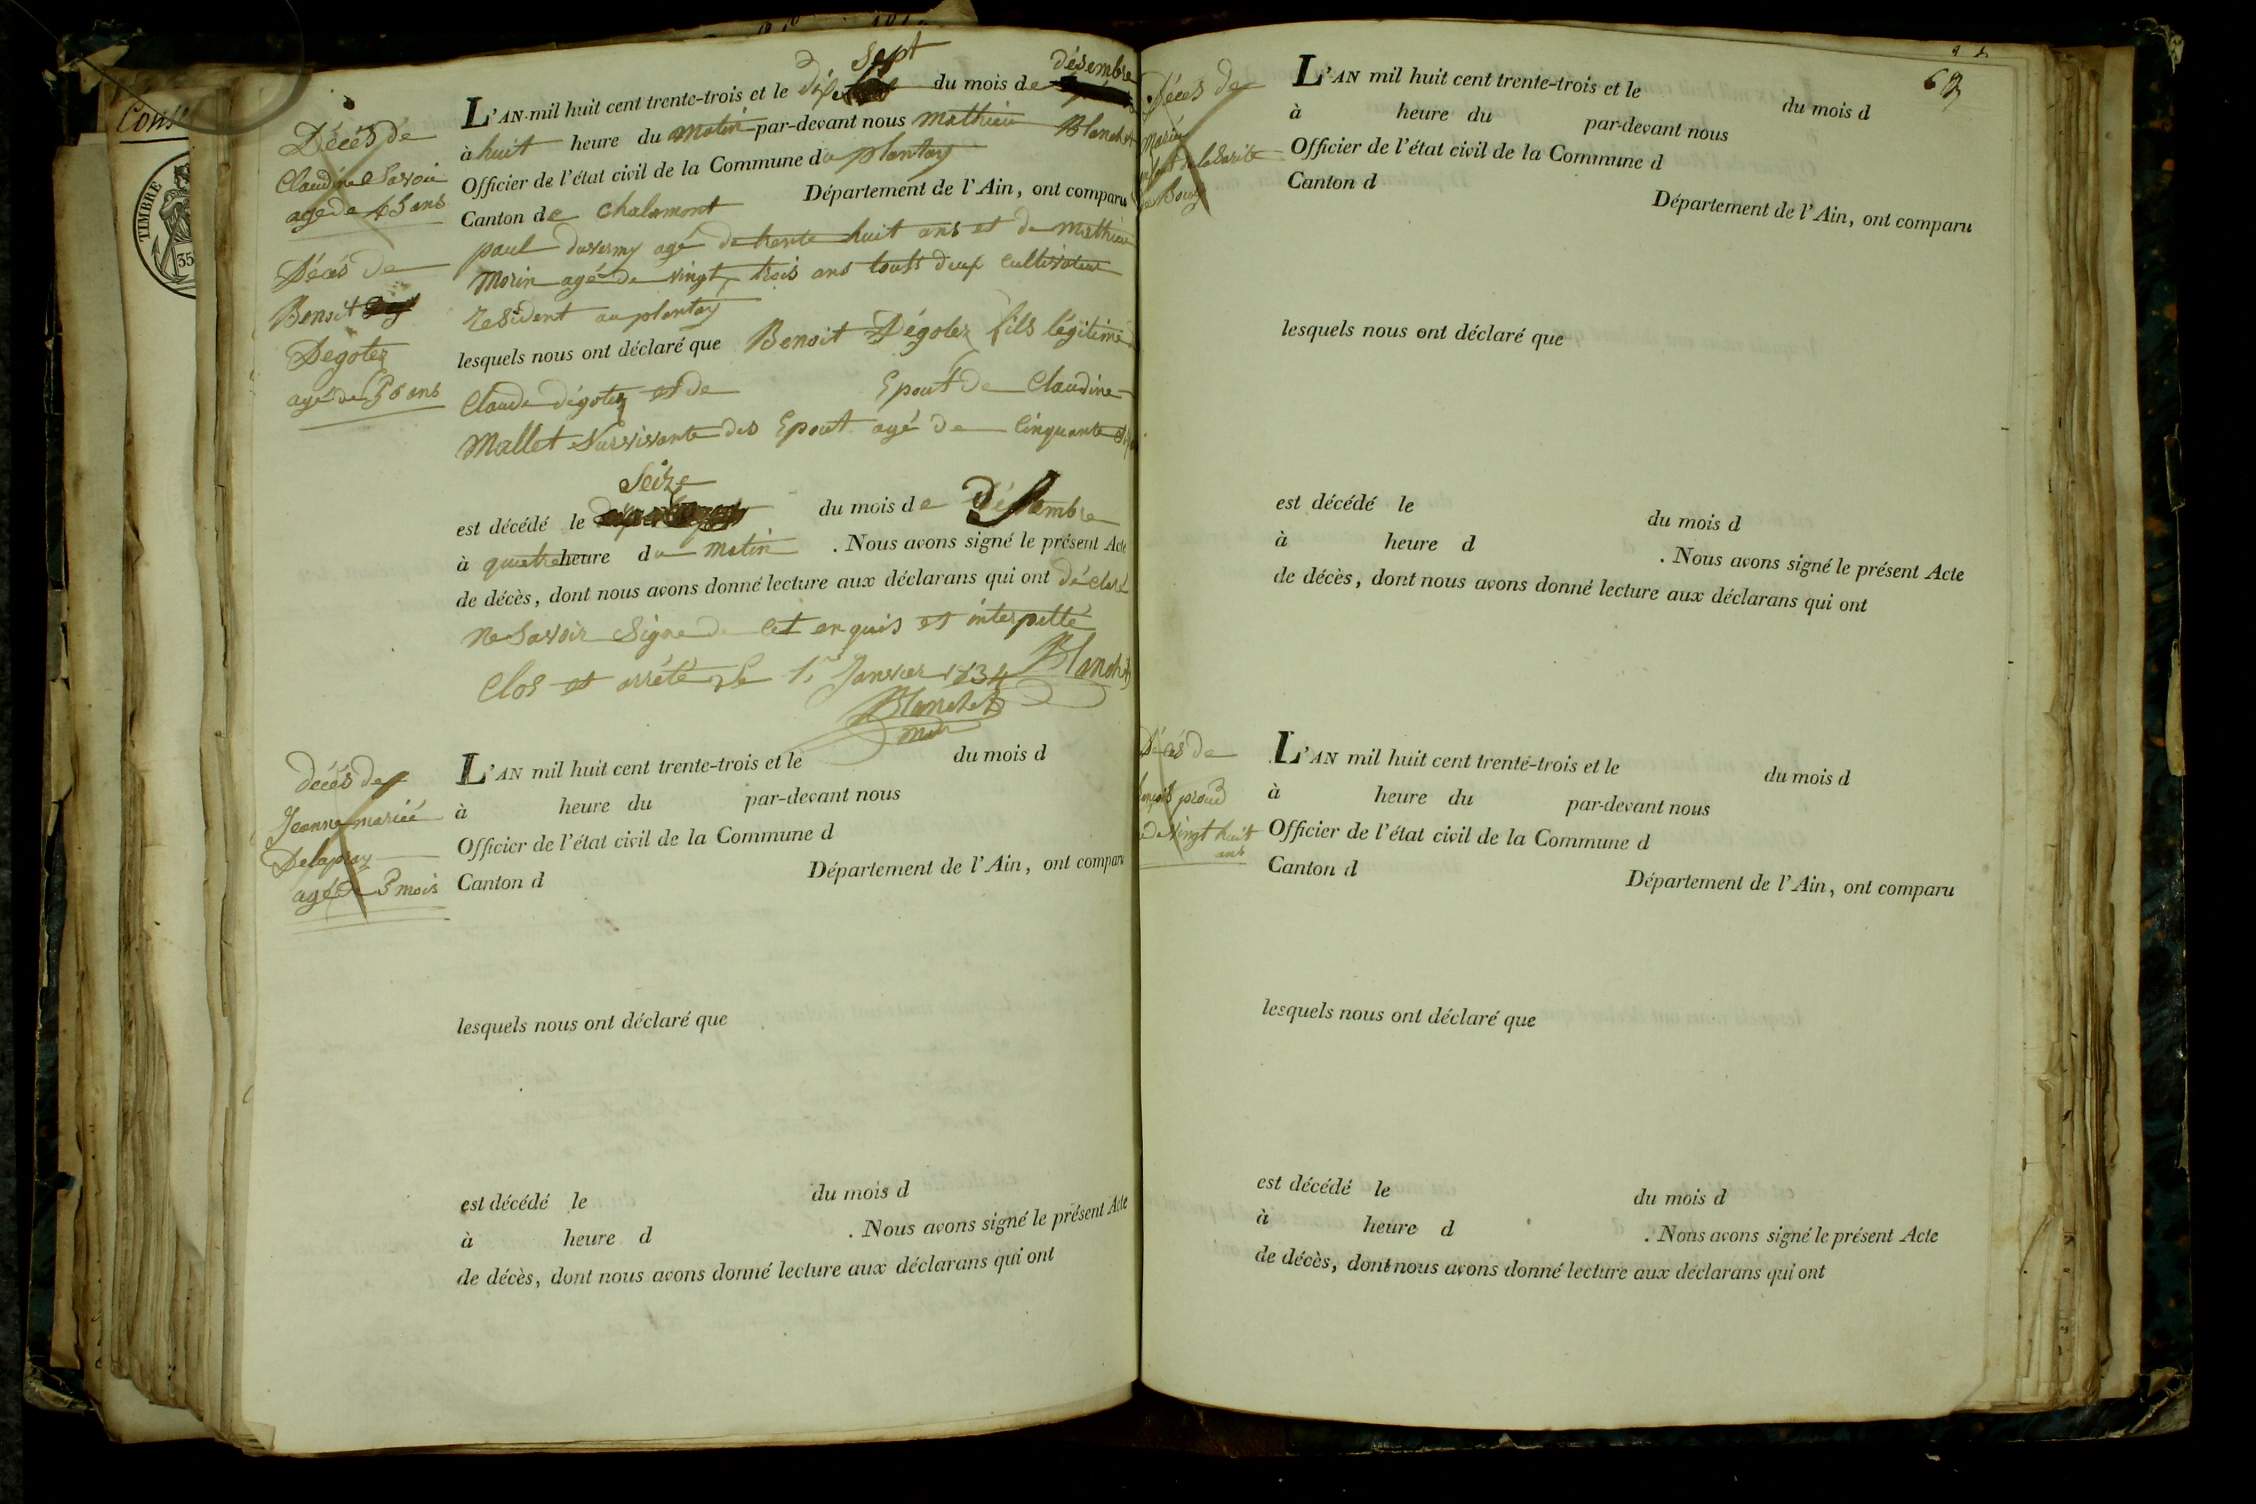 Cons
TIMBRE
35
Décès de
Claudine Savoie
age de 45 ans
Décès de
Benoit
Dégotez
agé de 56 ans
L'AN mil huit cent trente-trois et le dix sept du mois de désembre
à huit heure du matin par-devant nous mathieu Blanchet
Officier de l'état civil de la Commune du plantay
Canton de Chalamont Département de l'Ain, ont comparu
paul duvermy agé de trente huit ans et de mathieu
Morin agé de vingt trois ans touts deux cultivateur
resident au plantay
lesquels nous ont déclaré que Benoit Dégotez fils légitime
Claude dégotez et de Epout de Claudine
Mallet Survivante des Epout agé de Cinquante
est décédé le Seize du mois de Désembre
à quatre heure du matin . Nous avons signé le présent Acte
de décès, dont nous avons donné lecture aux déclarans qui ont déclaré
ne Savoir Signe de cet enquis et interpellé
Clos et arrété le 1.r Janvier 1834 Blanchet
Blanchet
décès de
Jeanne mariée
Delapray
agé de 3 mois
L'AN mil huit cent trente-trois et le du mois d
à heure du par-devant nous
Officier de l'état civil de la Commune d
Canton d Département de l'Ain, ont comparu
lesquels nous ont déclaré que
est décédé le du mois d
à heure d . Nous avons signé le présent Acte
de décès, dont nous avons donné lecture aux déclarans qui ont
Décès de
Marie
de la Carité
Bourg
L'AN mil huit cent trente-trois et le du mois d
à heure du par-devant nous
Officier de l'état civil de la Commune d
Canton d Département de l'Ain, ont comparu
lesquels nous ont déclaré que
est décédé le du mois d
à heure d . Nous avons signé le présent Acte
de décès, dont nous avons donné lecture aux déclarans qui ont
Décès de
proud
de vingt huit
ans
L'AN mil huit cent trente-trois et le du mois d
à heure du par-devant nous
Officier de l'état civil de la Commune d
Canton d Département de l'Ain, ont comparu
lesquels nous ont déclaré que
est décédé le du mois d
à heure d . Nous avons signé le présent Acte
de décès, dont nous avons donné lecture aux déclarans qui ont